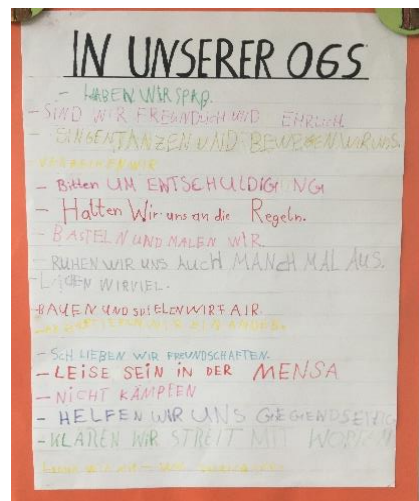 IN UNSERER OGS
- HABEN WIR SPAß.
- SIND WIR FREUNDLICH UND EHRLICH
- SINGEN TANZEN UND BEWEGEN WIR UNS.
- Bitten UM ENTSCHULDIGUNG
- Halten Wir uns an die Regeln.
- BASTELN UND MALEN WIR.
- RUHEN WIR UNS AUCH MANCHMAL AUS.
- LACHEN WIR VIEL.
- BAUEN UND SPIELEN WIR FAIR.
- SCHLIEßEN WIR FREUNDSCHAFTEN.
- LEISE SEIN IN DER MENSA
- NICHT KÄMPFEN
- HELFEN WIR UNS GEGENDSEITIG
- KLÄREN WIR STREIT MIT WORTEN